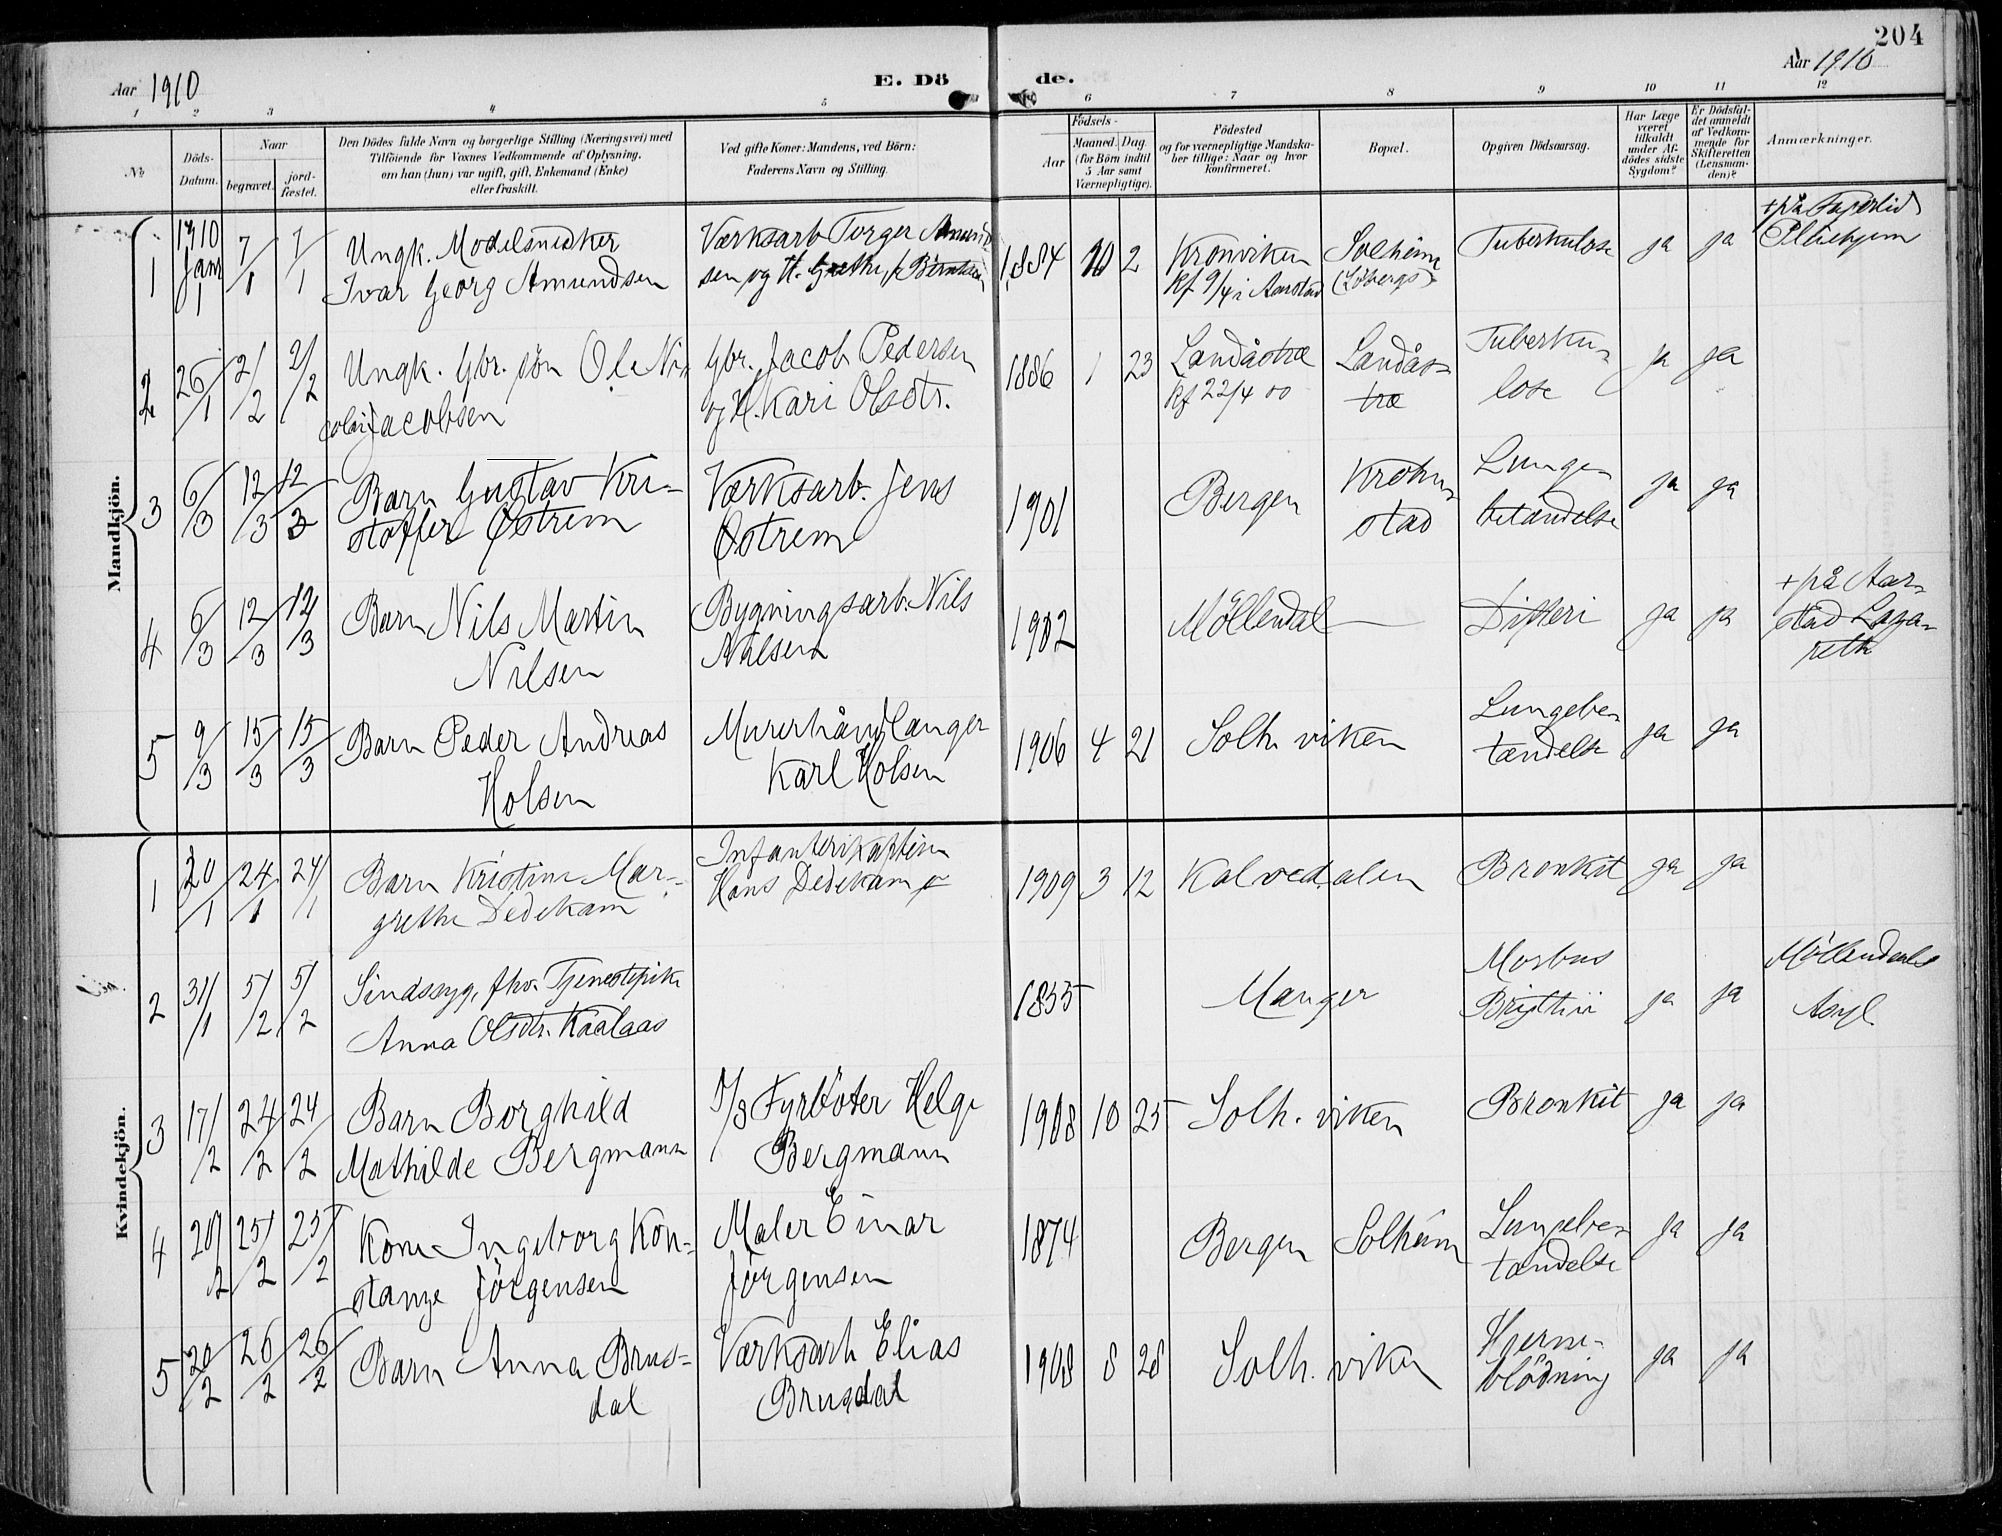 204
Aar 1910
E. Dö de.
Aar 1910
1 2 3 4 5 6 7 8 9 10 11 12
No
Döds-Datum.
Naar
begravet.
jord-fæstet.
Den Dödes fulde Navn og borgerlige Stilling (Næringsvei) med
Tilföiende for Voxnes Vedkommende af Oplysning,
om han (hun) var ugift, gift, Enkemand (Enke)
eller fraskilt.
Ved gifte Koner: Mandens, ved Börn:
Faderens Navn og Stilling.
Födsels-
Aar
Maaned. Dag.
(for Börn indtil
5 Aar samt
Værnepligtige).
Födested
og for værnepligtige Mandska-
ber tillige: Naar og hvor
konfirmeret.
Bopæl.
Opgiven Dödsaarsag.
Har Læge
været
tilkaldt
under Af-
dödes sidste
Sygdom?
Er Dödsfal-
det anmeldt
af Vedkom-
mende for
Skifteretten
(Lensman-
den)?
Anmærkninger.
Mandkjön.
1 1910 Janr 1 7/1 7/1 Ungk. Modelsnedker
Ivar Georg Amundsen
Værksarb Torger Amund
sen og H. Grethe f. Börntsen
1884 10 2
Kronviken
kf 9/4 i Aarstad
Solheim
(Löbergs)
Tuberkulose ja ja
+ på Fagerlid
Pleiehjem
2 26/1 2/2 2/2 Ungk. Gbr. sön Ole Ni
colai Jacobsen
Gbr. Jacob Pedersen
og H. Kari Olsdtr.
1886 1 23
Landåstræ
kf 22/4 00
Landås-
træ
Tuberku-
lose
ja ja
3 6/3 12/3 12/3 Barn Gustav Kri-
stoffer Østrem
Værksarb. Jens
Østrem
1901
Bergen
Krohn-
stad
Lunge-
betændelse
ja ja
4 6/3 12/3 12/3 Barn Nils Martin
Nilsen
Bygningsarb. Nils
Nilsen
1902
Möllendal
Difteri
ja ja
+ på Aar-
stad Laza-
reth
5 9/3 15/3 15/3 Barn Peder Andreas
Holsen
Murerhåndlanger
Karl Holsen
1906 4 21
Solh. viken
Lungebe-
tændelse
ja ja
Kvindekjön.
1 20/1 24/1 24/1 Barn Kristine Mar-
grethe Dedekam
Infanterikaptein
Hans Dedekam
1909 3 12
Kalvedalen
Bronkit ja ja
2 31/1 5/2 5/2 Sindssyg, fhv. Tjenestepike
Anna Olsdtr. Kaalaas
1855
Manger
Morbus
Brigthii
ja ja
Möllendals
Asyl
3 17/2 24/2 24/2 Barn Borghild
Mathilde Bergmann
D/S Fyrböter Helge
Bergmann
1908 10 25
Solh. viken
Bronkit ja ja
4 20/2 25/2 25/2 Kone Ingeborg Kon-
stanze Jörgensen
Maler Einar
Jörgensen
1874
Bergen
Solheim
Lungebe-
tændelse
ja ja
5 20/2 26/2 26/2 Barn Anna Brus-
dal
Værksarb Elias
Brusdal
1908 8 28
Solh. viken
Hjerne-
blödning
ja ja